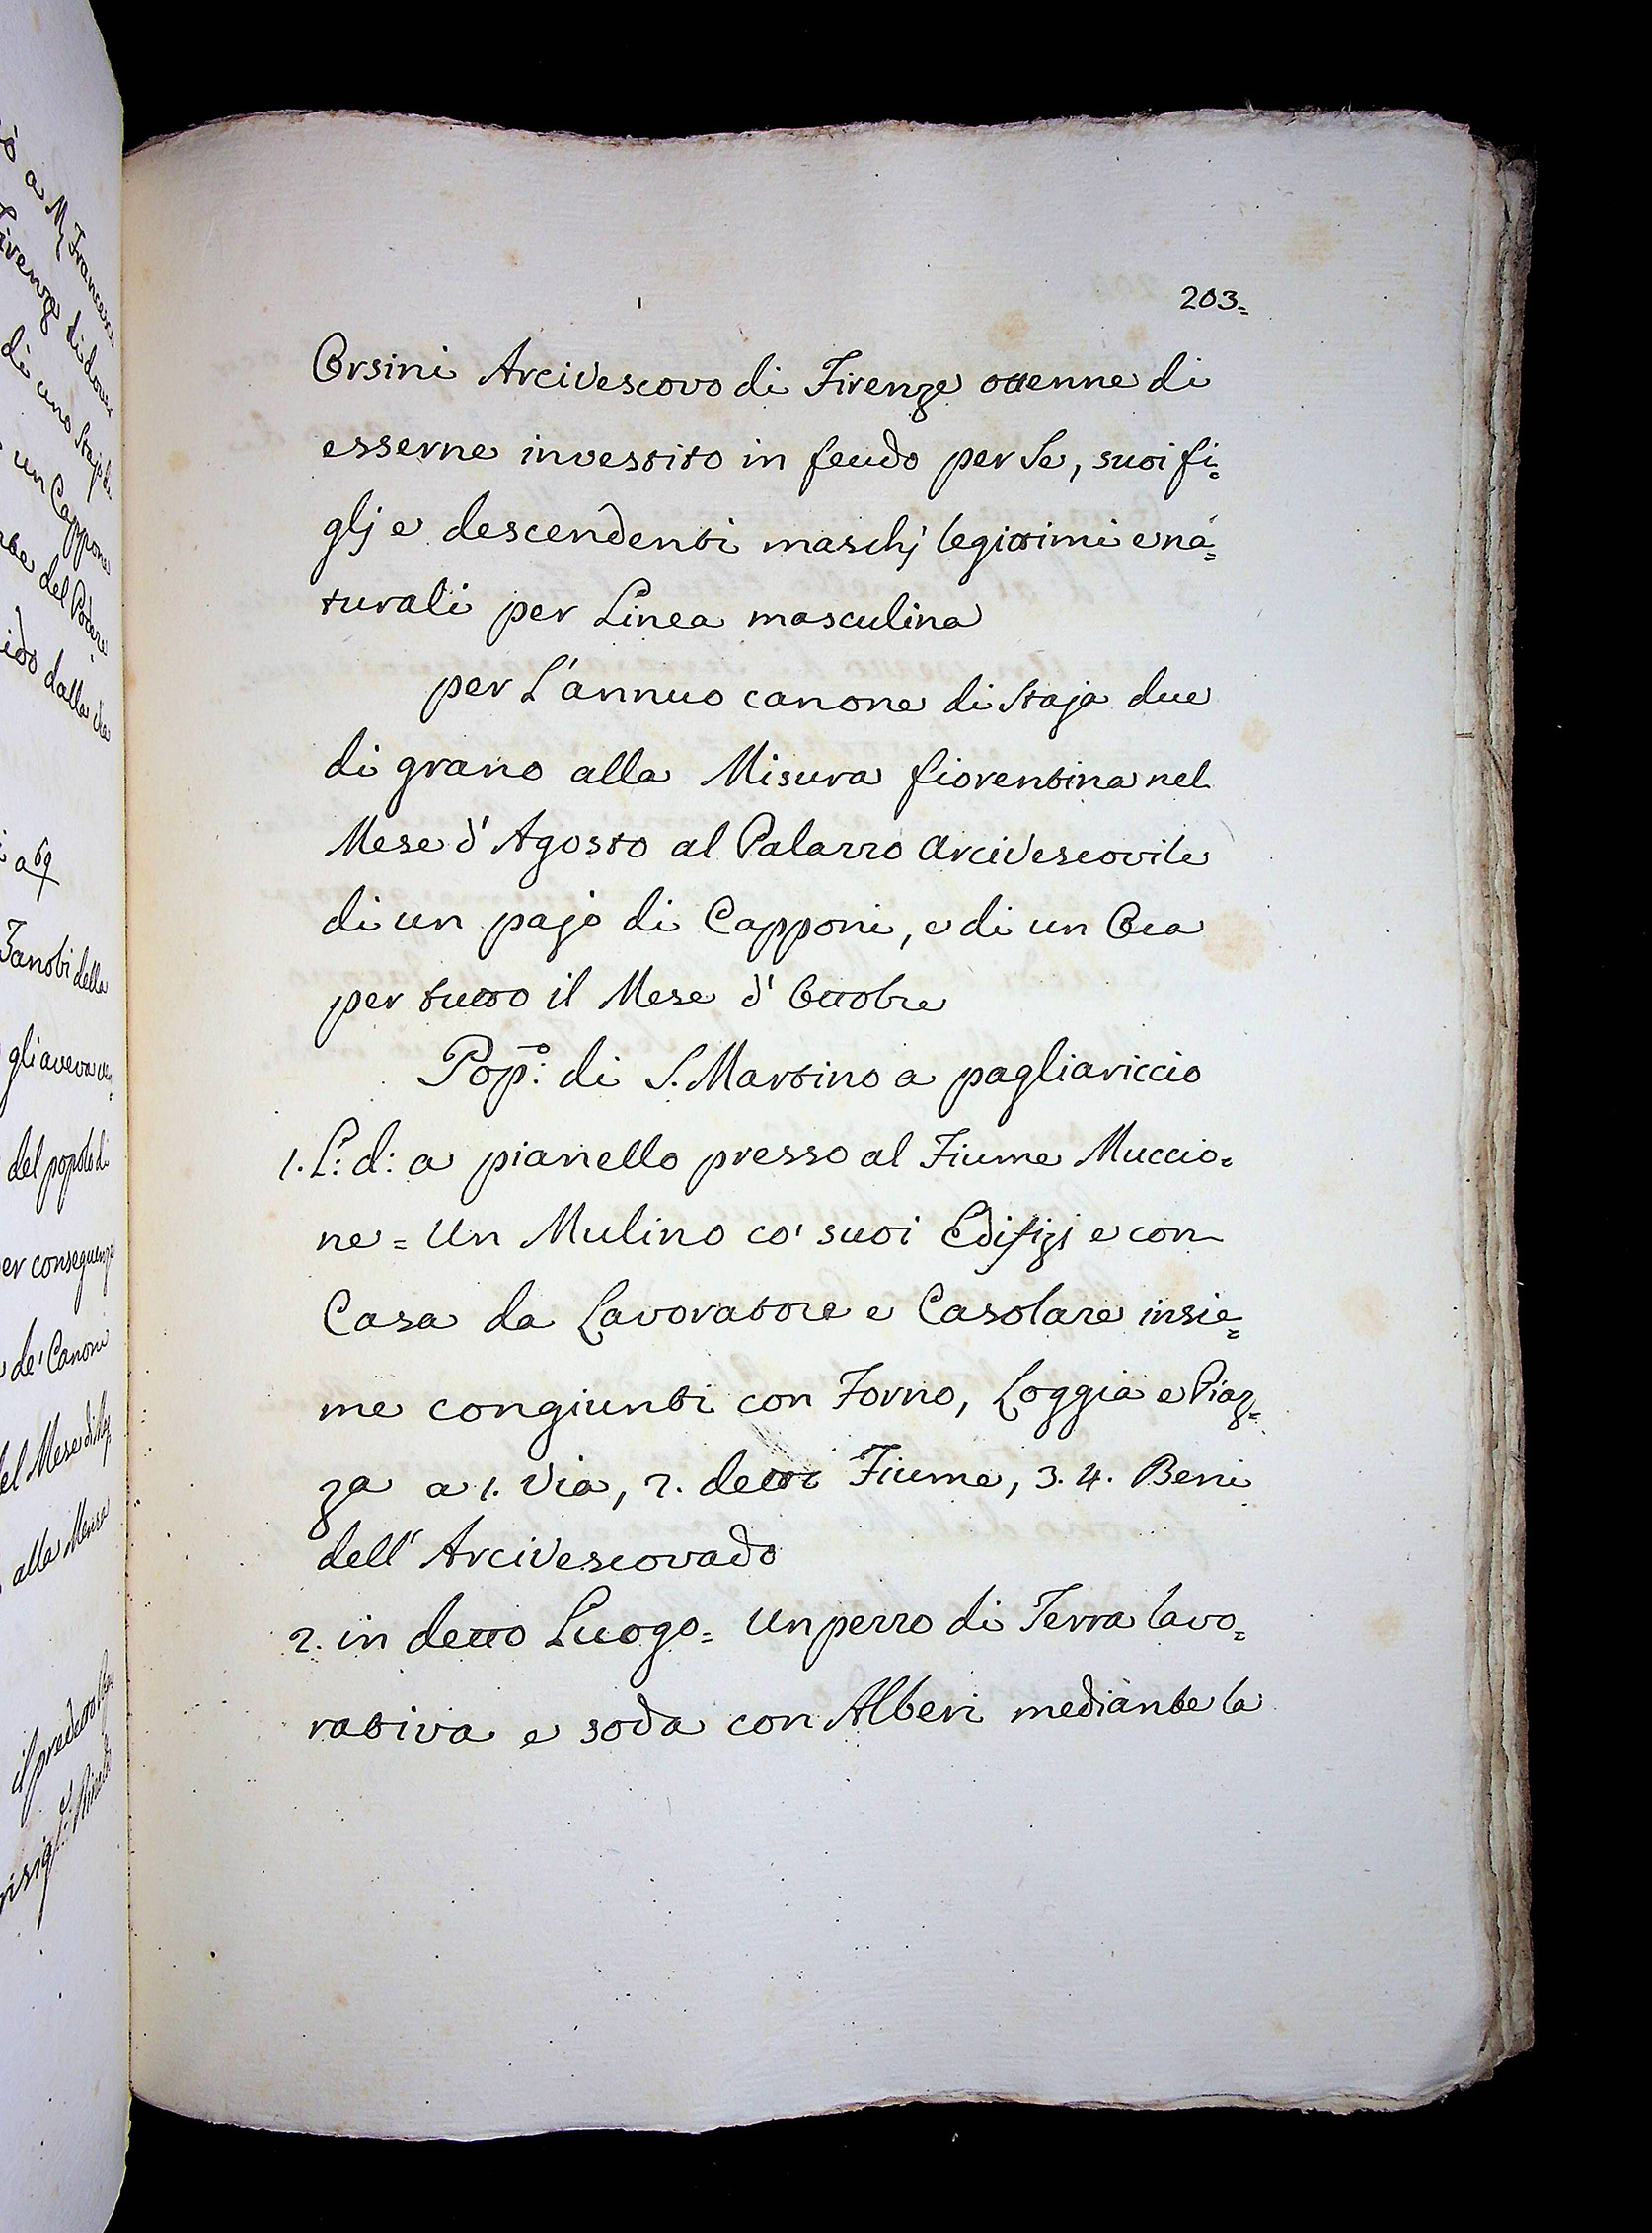 203=
Orsini Arcivescovo di Firenze ottenne di
esserne investito in feudo per Se, suoi fi=
glj e descendenti maschj legittimi e na=
turali per Linea masculina
per L'annuo canone di Staja due
di grano alla Misura fiorentina nel
Mese d'Agosto al Palazzo Arcivescovile
di un pajo di Capponi, e di un Oca
per tutto il Mese d'Ottobre
Pop:o di S. Martino a pagliariccio
1. L: d: a pianello presso al Fiume Muccio=
ne = Un Mulino co' suoi Edifizj e con
Casa da Lavoratore e Casolare insie=
me congiunti con Forno, Loggia e Piaz=
za a 1. Via, 2. detti Fiume, 3. 4. Beni
dell'Arcivescovado
2. in detto Luogo = Un pezzo di Terra lavo=
rativa e soda con Alberi mediante la
un Cappone
Zanobi della
gli aveva
del popolo di
de' Canoni
alla Mensa
il predetto